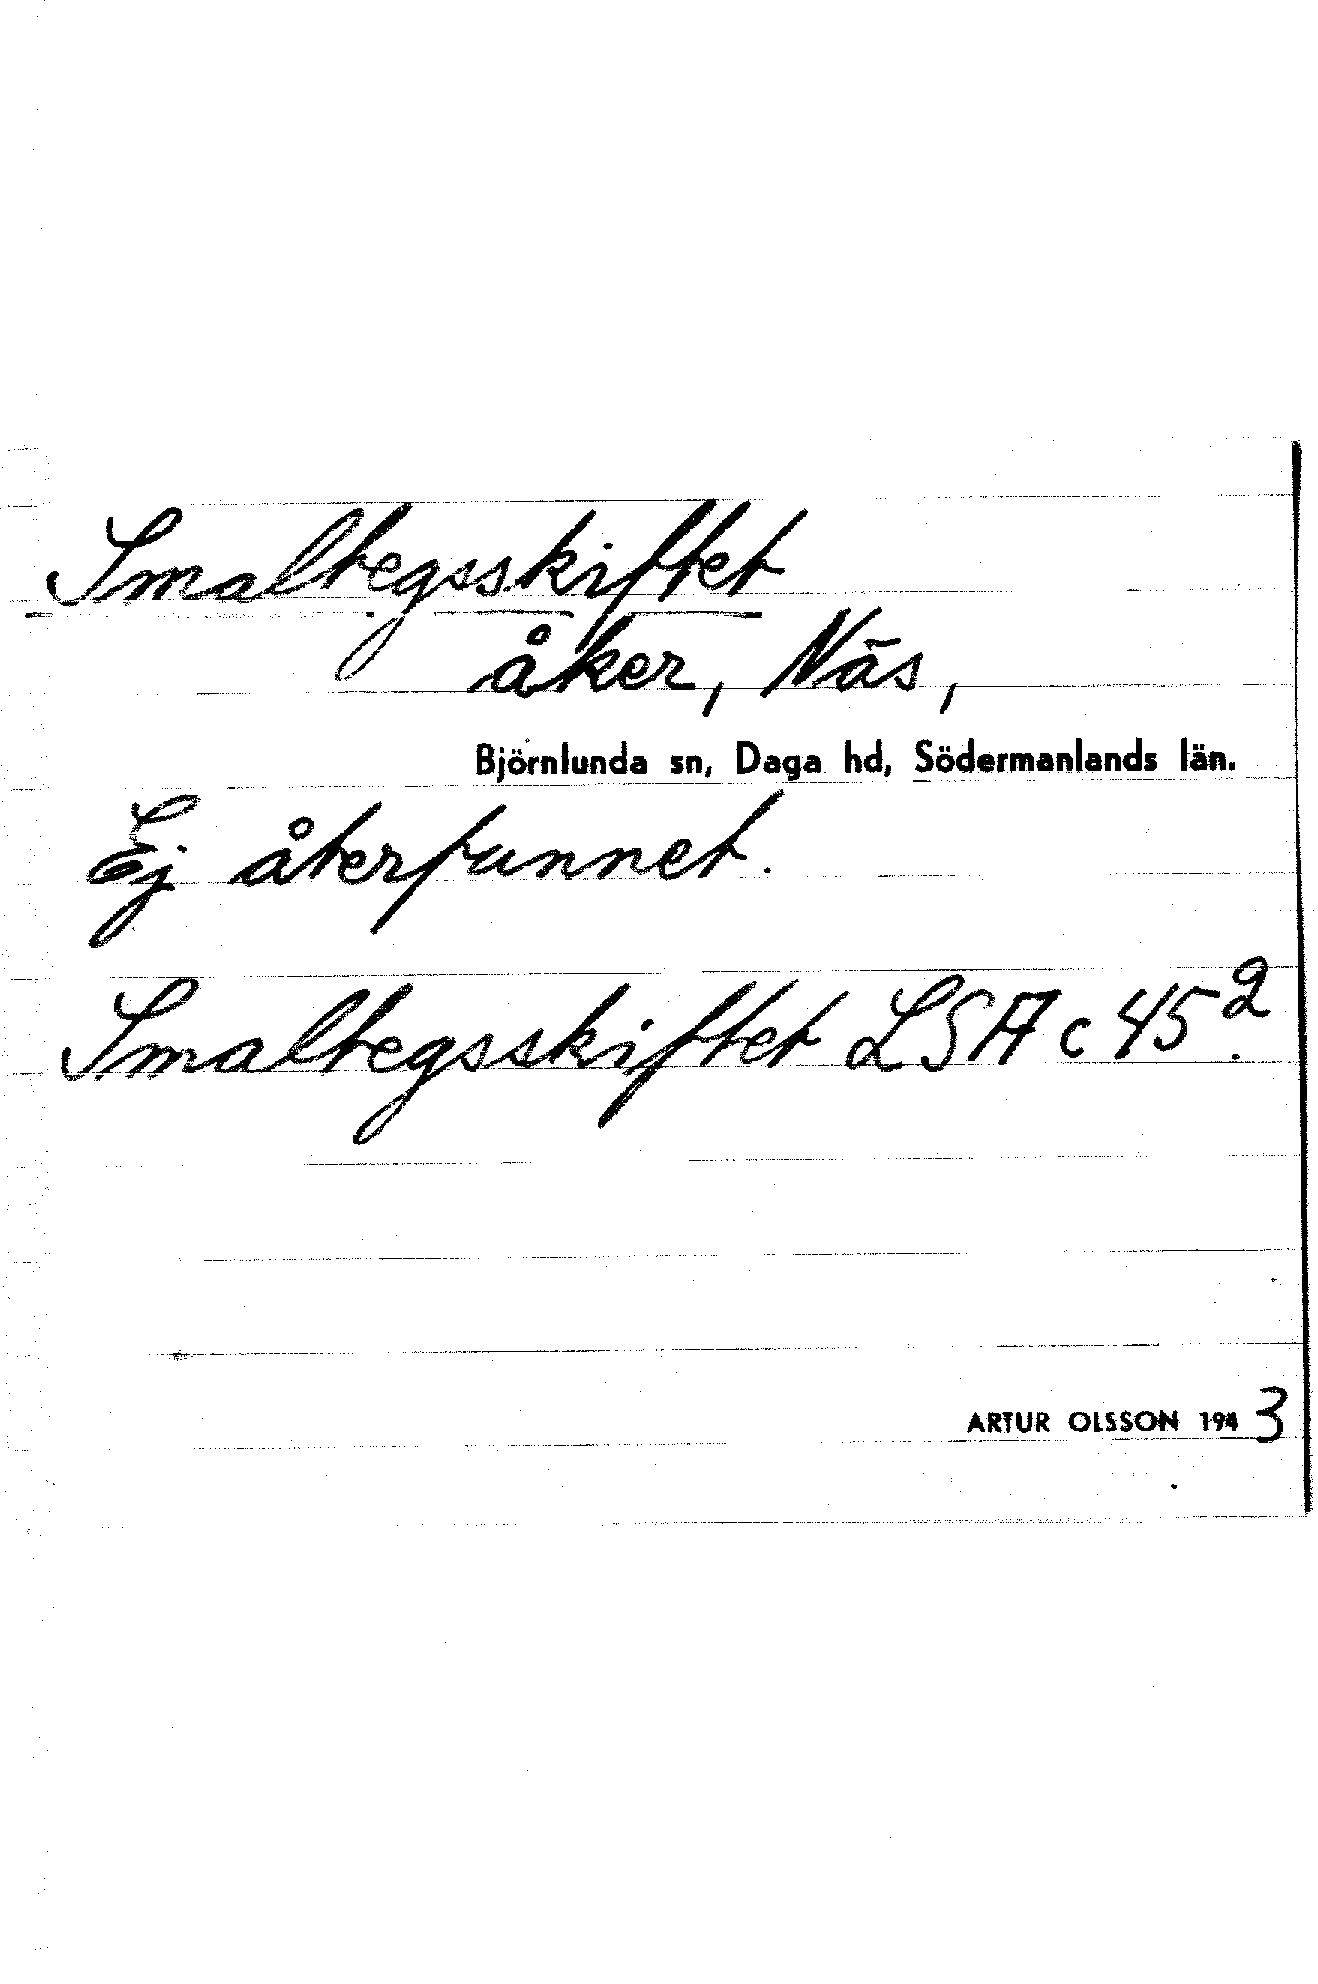 Smaltegsskiftet
åker, Näs,
Björnlunda sn, Daga hd, Södermanlands län.
Ej återfunnet.
Smaltegsskiftet LSA c 45².
ARTUR OLSSON 1943